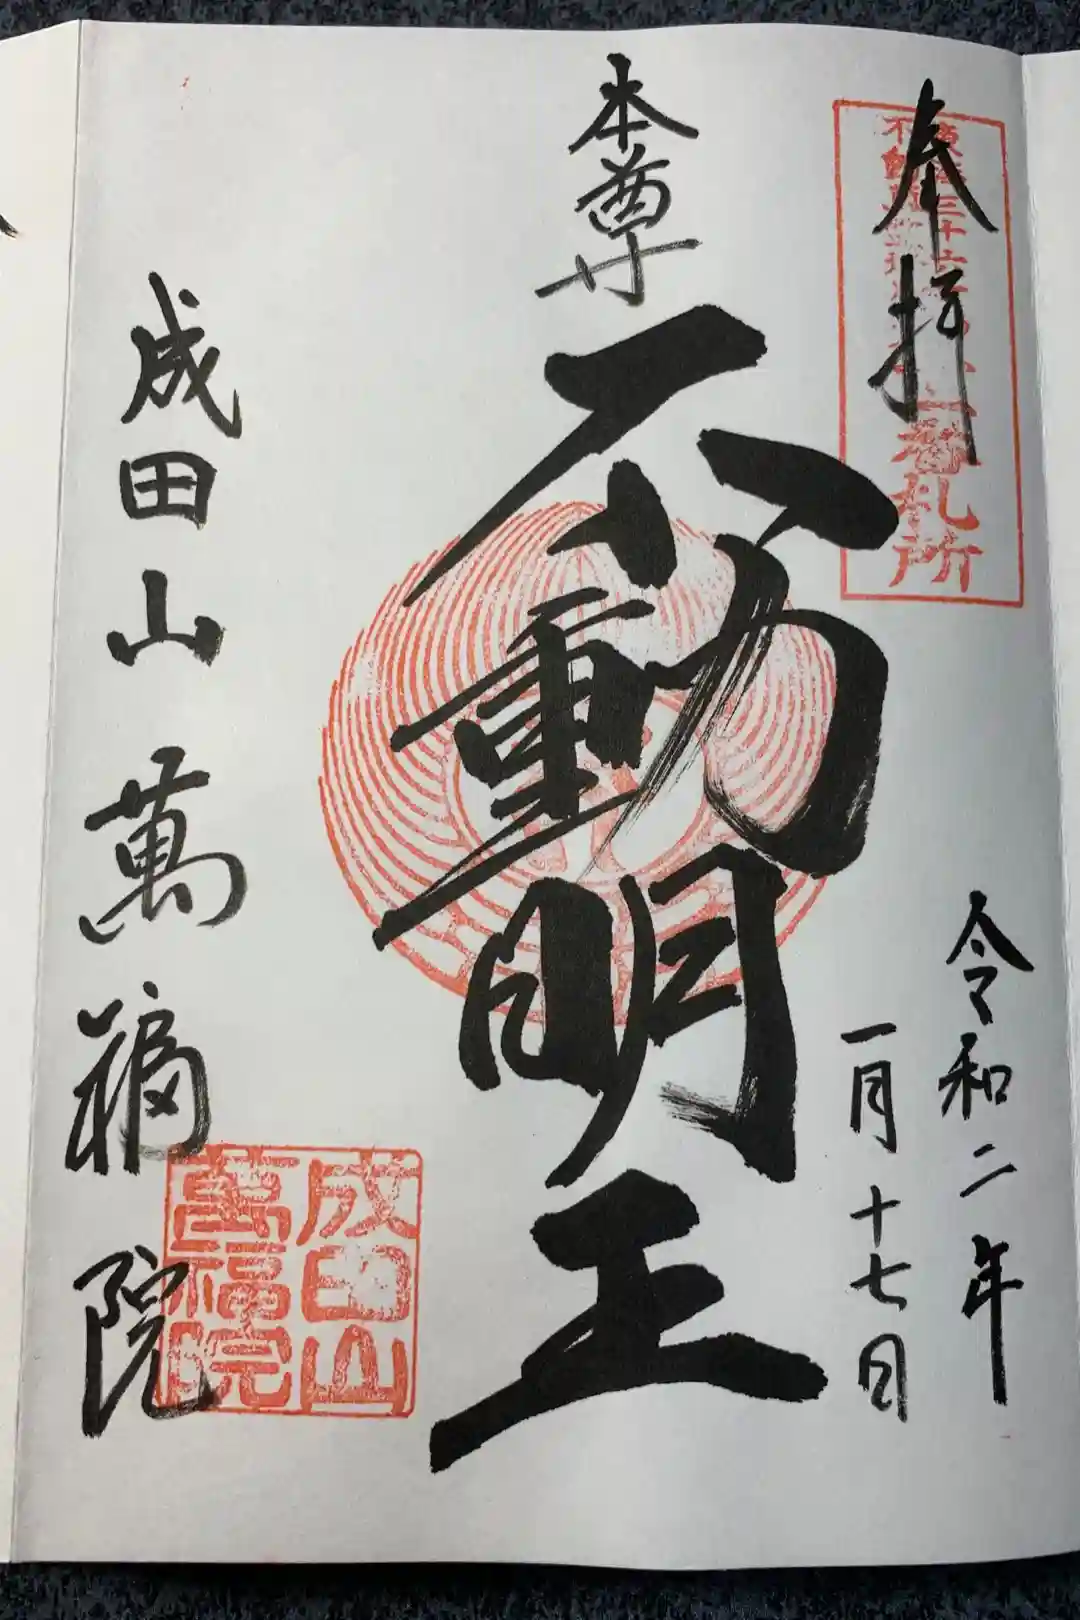 奉拝
番札所
令和二年
一月十七日
本尊
不動明王
成田山萬福院
成田山
萬福院